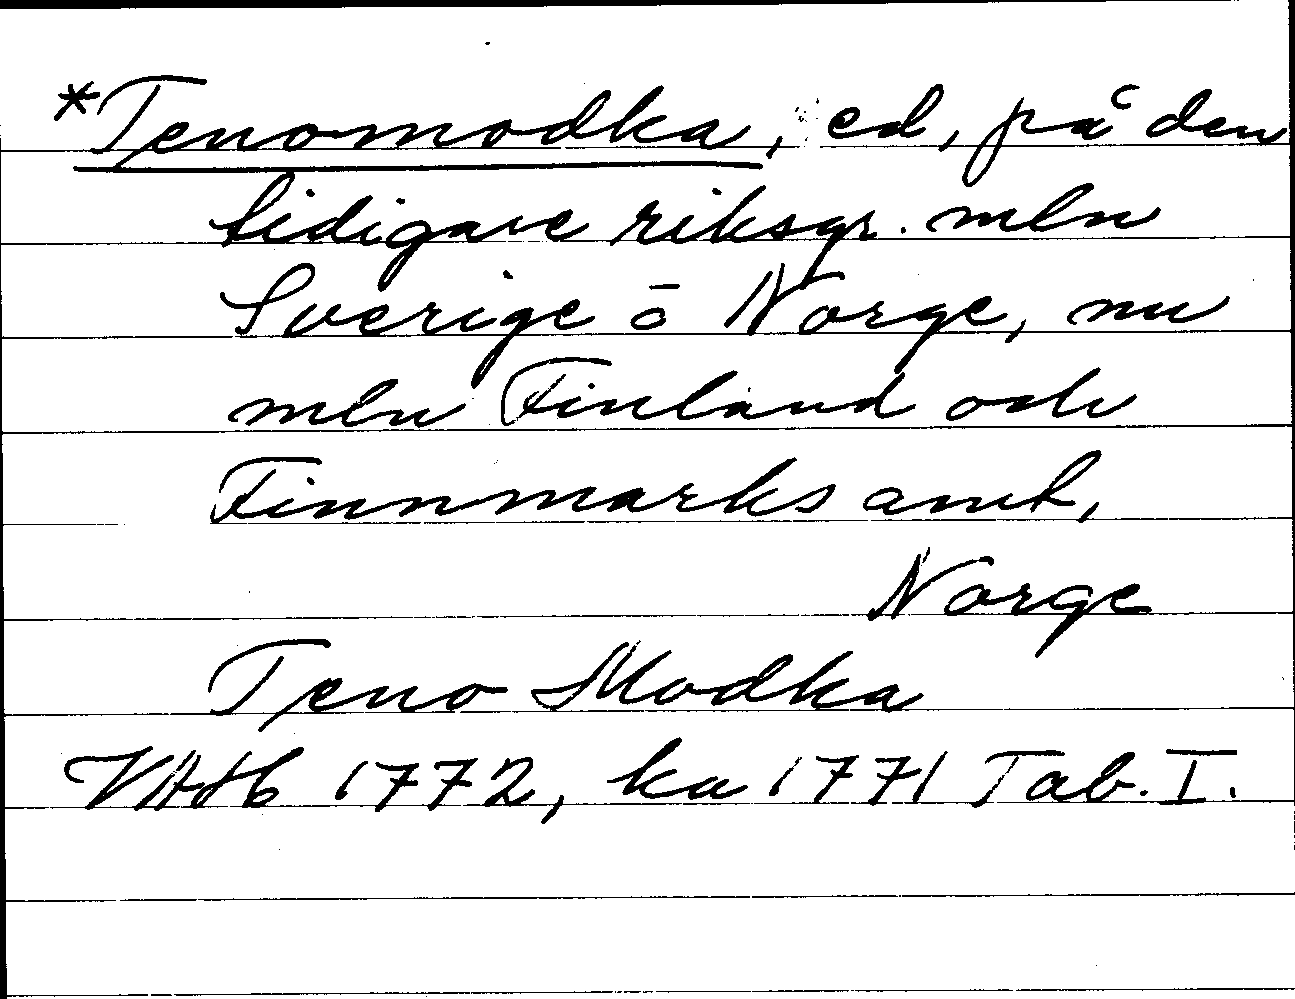 *Tenomodka, ed, på den
tidigare riksgr. mln
Sverige o Norge, nu
mln Finland och
Finnmarks amt,
Norge
Teno Modka
VAHb 1772, ka 1771 Tab. I.